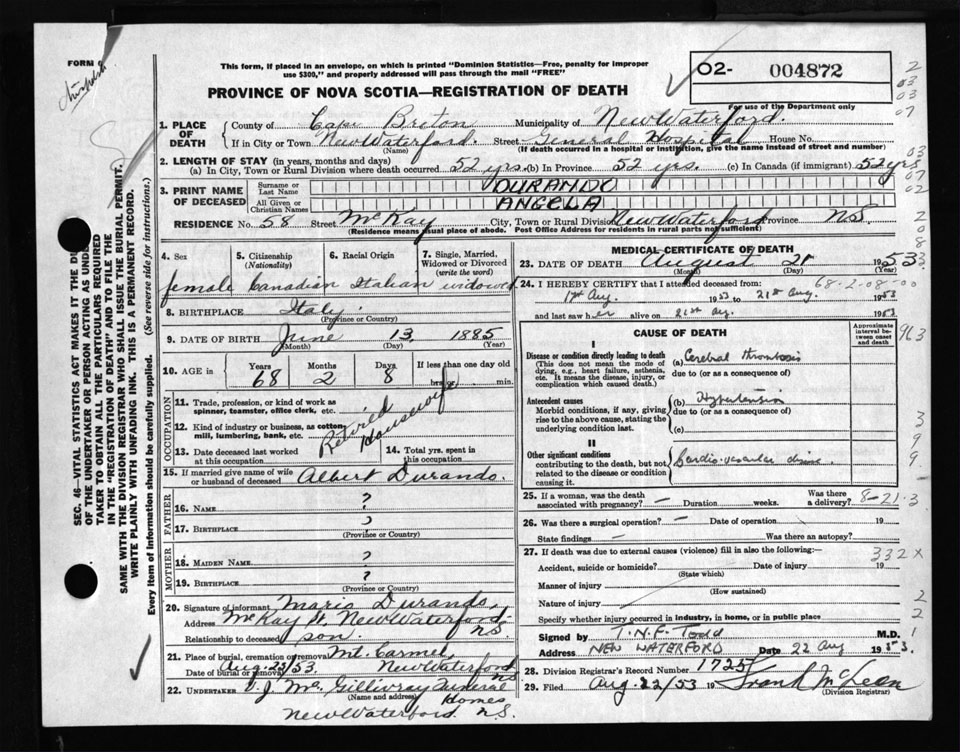 FORM
This form, if placed in an envelope, on which is printed "Dominion Statistics—Free, penalty for improper
use $300," and properly addressed will pass through the mail "FREE"
O2- 004872
PROVINCE OF NOVA SCOTIA—REGISTRATION OF DEATH
For use of the Department only
1. PLACE OF DEATH
County of Cape Briton Municipality of New Waterford.
If in City or Town New Waterford. Street General Hospital House No.
(Name) (If death occurred in a hospital or institution, give the name instead of street and number)
2. LENGTH OF STAY (in years, months and days)
(a) In City, Town or Rural Division where death occurred 52 yrs. (b) In Province 52 yrs. (c) In Canada (if immigrant) 52 yrs
3. PRINT NAME OF DECEASED
Surname or Last Name DURANDO
All Given or Christian Names ANGELA
RESIDENCE No. 58 Street McKay City, Town or Rural Division New Waterford Province N.S.
(Residence means usual place of abode. Post Office Address for residents in rural parts not sufficient)
4. Sex
female
5. Citizenship (Nationality)
Canadian
6. Racial Origin
Italian
7. Single, Married, Widowed or Divorced (write the word)
widowed
8. BIRTHPLACE Italy.
(Province or Country)
9. DATE OF BIRTH June 13. 1885
(Month) (Day) (Year)
10. AGE in
Years 68
Months 2
Days 8
If less than one day
hrs. min.
OCCUPATION
11. Trade, profession, or kind of work as
spinner, teamster, office clerk, etc.
12. Kind of industry or business, as cotton-
mill, lumbering, bank, etc.
Retired Housewife
13. Date deceased last worked
at this occupation
14. Total yrs. spent in
this occupation
15. If married give name of wife
or husband of deceased Albert Durando.
FATHER
16. NAME ?
17. BIRTHPLACE ?
(Province or Country)
MOTHER
18. MAIDEN NAME ?
19. BIRTHPLACE ?
(Province or Country)
20. Signature of informant Mario Durando
Address McKay St. New Waterford N.S.
Relationship to deceased son.
21. Place of burial, cremation or removal Mt. Carmel
Date of burial or removal Aug. 23/53 New Waterford NS
22. UNDERTAKER V. J. McGillivray Funeral Homes
(Name and address)
New Waterford. N.S.
MEDICAL CERTIFICATE OF DEATH
23. DATE OF DEATH August 21 1953
(Month) (Day) (Year)
24. I HEREBY CERTIFY that I attended deceased from: 68-2-08-00
17th Aug. 1953 to 21st Aug. 1953
and last saw her alive on 21st Aug. 1953
CAUSE OF DEATH
Approximate interval between onset and death
I
Disease or condition directly leading to death
(This does not mean the mode of
dying, e.g., heart failure, asthenia,
etc. It means the disease, injury, or
complication which caused death.)
(a) Cerebral thrombosis
due to (or as a consequence of)
Antecedent causes
Morbid conditions, if any, giving
rise to the above cause, stating the
underlying condition last.
(b) Hypertension
due to (or as a consequence of)
(c)
II
Other significant conditions
contributing to the death, but not
related to the disease or condition
causing it.
Cardio-vascular disease
25. If a woman, was the death
associated with pregnancy? — Duration weeks. Was there
a delivery? 8-21-3
26. Was there a surgical operation? — Date of operation 19
State findings — Was there an autopsy?
27. If death was due to external causes (violence) fill in also the following:— 332X
Accident, suicide or homicide? Date of injury 19
(State which)
Manner of injury
(How sustained)
Nature of injury
Specify whether injury occurred in industry, in home, or in public place
Signed by T.N.E. Todd M.D.
Address NEW WATERFORD Date 22 Aug 1953.
28. Division Registrar's Record Number 1725
29. Filed Aug. 22/53 19 Frank McLean
(Division Registrar)
SEC. 46—VITAL STATISTICS ACT MAKES IT THE
OF THE UNDERTAKER OR PERSON ACTING AS
TAKER TO OBTAIN ALL THE PARTICULARS REQUIRED
IN THE "REGISTRATION OF DEATH" AND TO FILE THE
SAME WITH THE DIVISION REGISTRAR WHO SHALL ISSUE THE BURIAL PERMIT.
WRITE PLAINLY WITH UNFADING INK. THIS IS A PERMANENT RECORD.
Every item of Information should be carefully supplied. (See reverse side for instructions.)